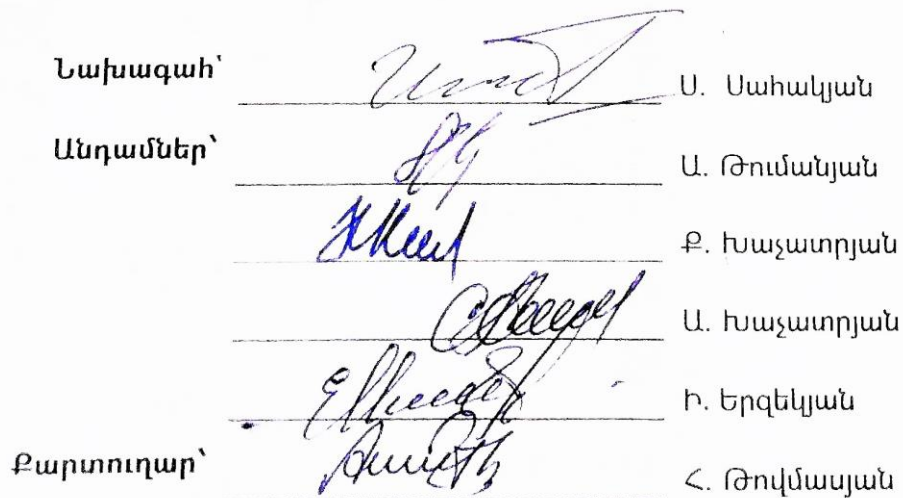 Նախագահ՝ Ս. Սահակյան
Անդամներ՝ Ա. Թումանյան
Ք. Խաչատրյան
Ա. Խաչատրյան
Ի. Երզեկյան
Քարտուղար՝ Հ. Թովմասյան